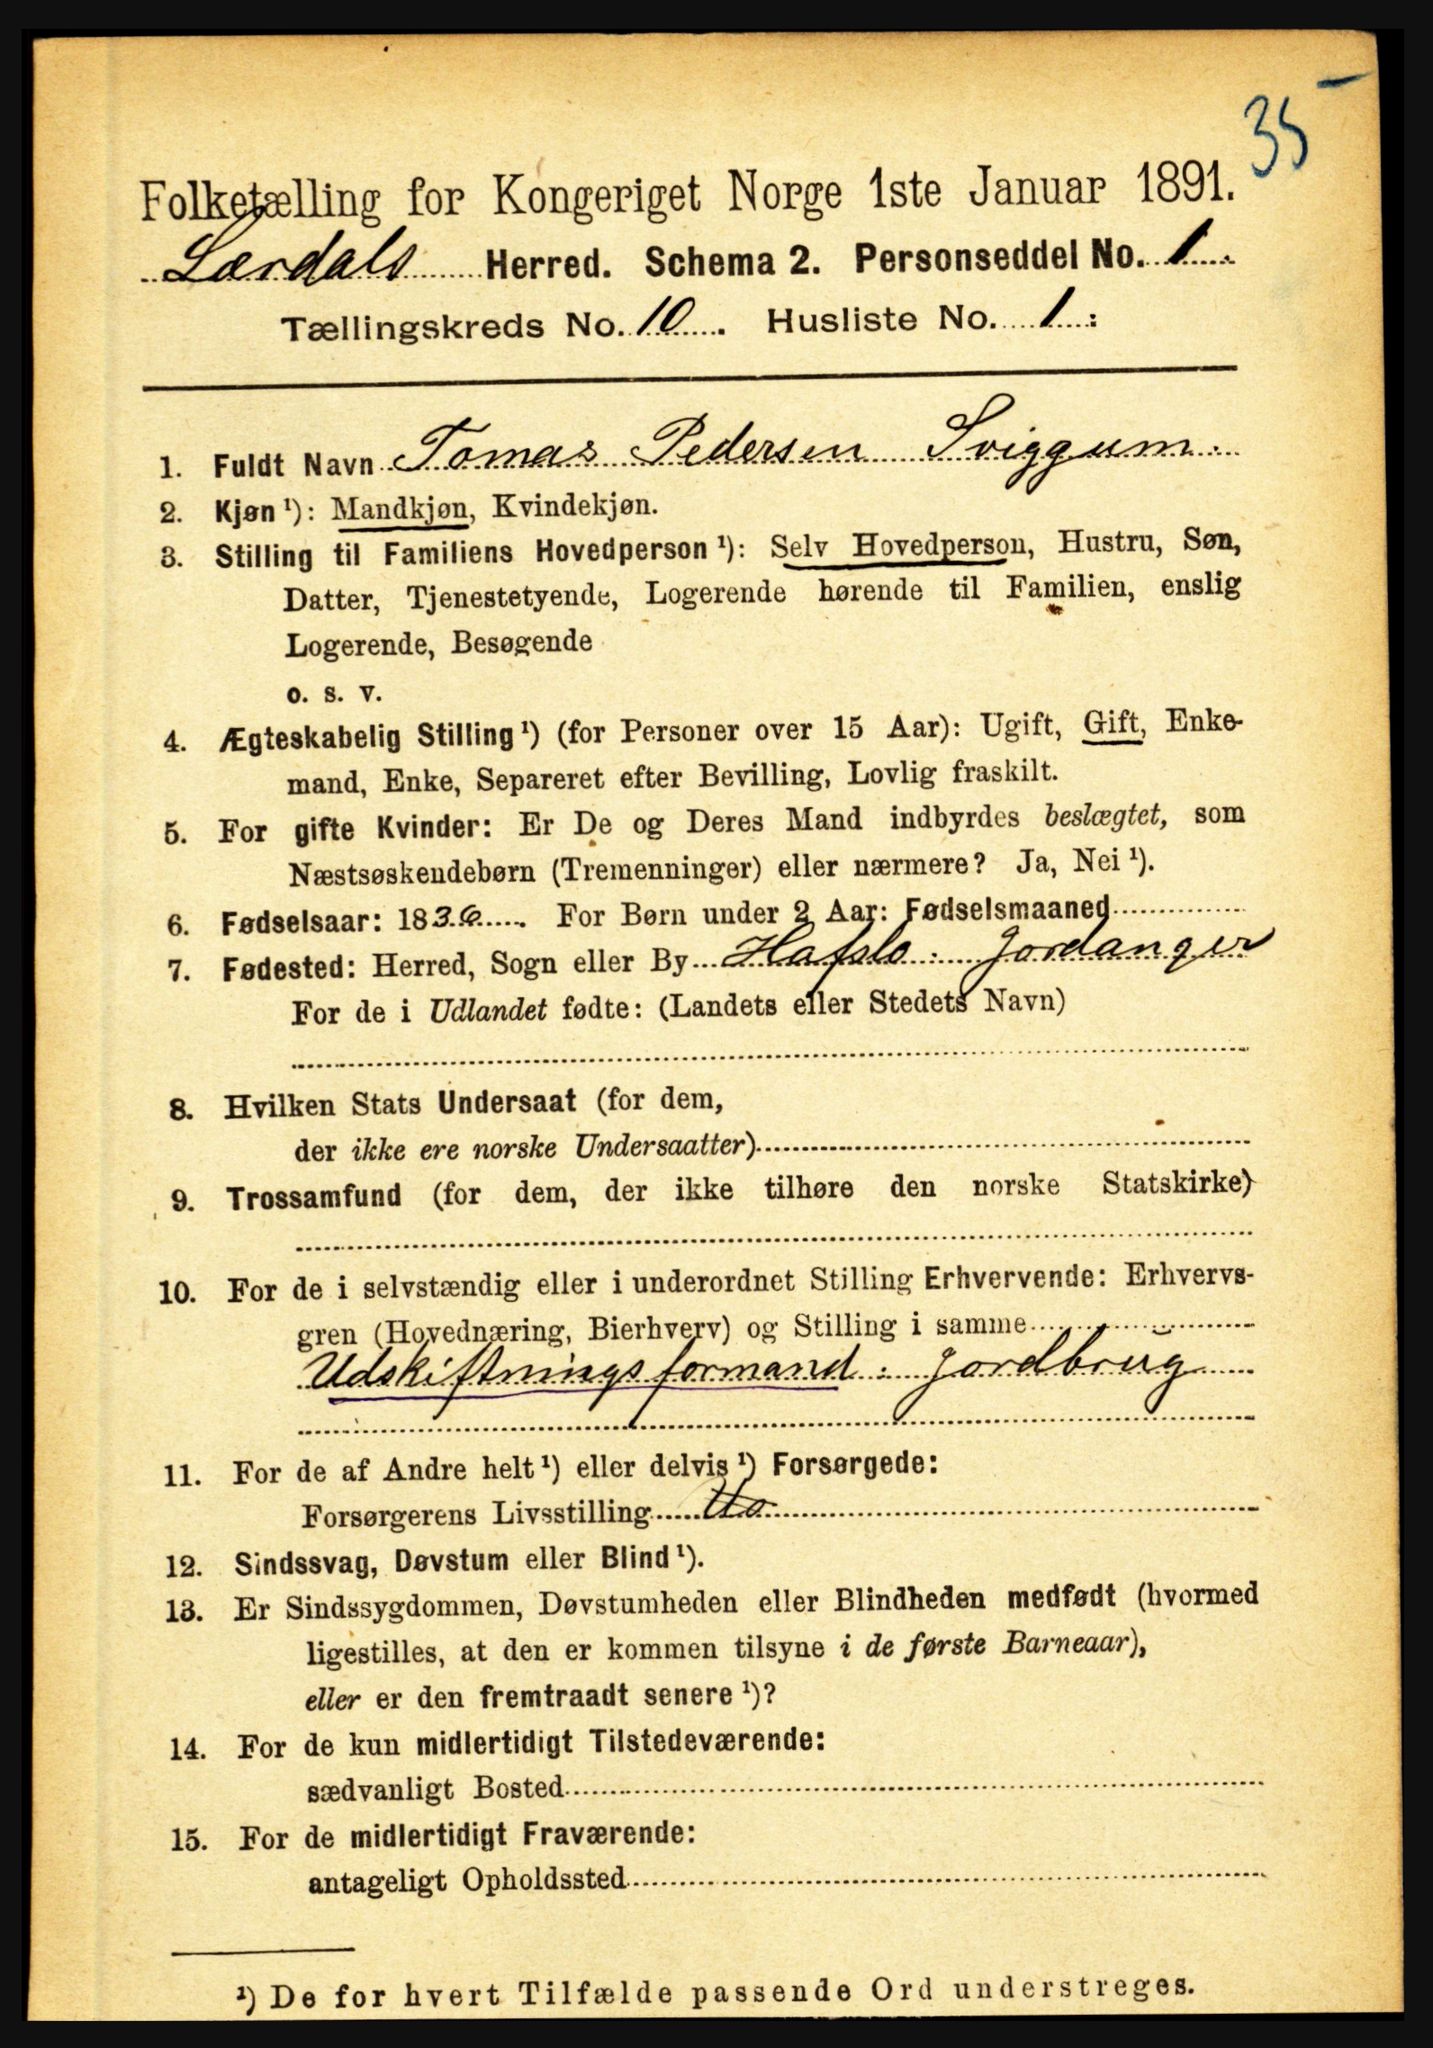 35
Folketælling for Kongeriget Norge 1ste Januar 1891.
Lærdals Herred. Schema 2. Personseddel No. 1.
Tællingskreds No. 10. Husliste No. 1:
1. Fuldt Navn Tomas Pedersen Sviggum.
2. Kjøn ¹): Mandkjøn, Kvindekjøn.
3. Stilling til Familiens Hovedperson ¹): Selv Hovedperson, Hustru, Søn,
Datter, Tjenestetyende, Logerende hørende til Familien, enslig
Logerende, Besøgende
o. s. v.
4. Ægteskabelig Stilling ¹) (for Personer over 15 Aar): Ugift, Gift, Enke-
mand, Enke, Separeret efter Bevilling, Lovlig fraskilt.
5. For gifte Kvinder: Er De og Deres Mand indbyrdes beslægtet, som
Næstsøskendebørn (Tremenninger) eller nærmere? Ja, Nei ¹).
6. Fødselsaar: 1836. For Børn under 2 Aar: Fødselsmaaned
7. Fødested: Herred, Sogn eller By Hafslo. Jordanger
For de i Udlandet fødte: (Landets eller Stedets Navn)
8. Hvilken Stats Undersaat (for dem,
der ikke ere norske Undersaatter)
9. Trossamfund (for dem, der ikke tilhøre den norske Statskirke)
10. For de i selvstændig eller i underordnet Stilling Erhvervende: Erhvervs-
gren (Hovednæring, Bierhverv) og Stilling i samme
Udskiftningsformand: Jordbrug
11. For de af Andre helt ¹) eller delvis ¹) Forsørgede:
Forsørgerens Livsstilling
12. Sindssvag, Døvstum eller Blind ¹).
13. Er Sindssygdommen, Døvstumheden eller Blindheden medfødt (hvormed
ligestilles, at den er kommen tilsyne i de første Barneaar),
eller er den fremtraadt senere ¹)?
14. For de kun midlertidigt Tilstedeværende:
sædvanligt Bosted
15. For de midlertidigt Fraværende:
antageligt Opholdssted
¹) De for hvert Tilfælde passende Ord understreges.